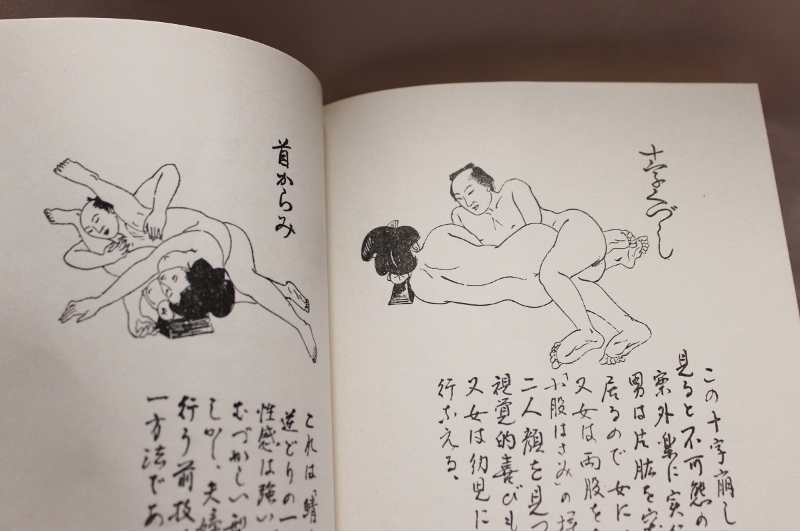 十字くづし
この十字崩し
見ると不可態の
案外楽に実
男は片肱を
居るので女に
又女は両股を
「小股はさみ」の様
二人顔を見つ
視覚的喜びも
又女は幼児に
行なえる、
首からみ
これは「鯖
逆どりの一
性感は強い
むづかしい型
しかし、夫婦
行う前技
一方法であ